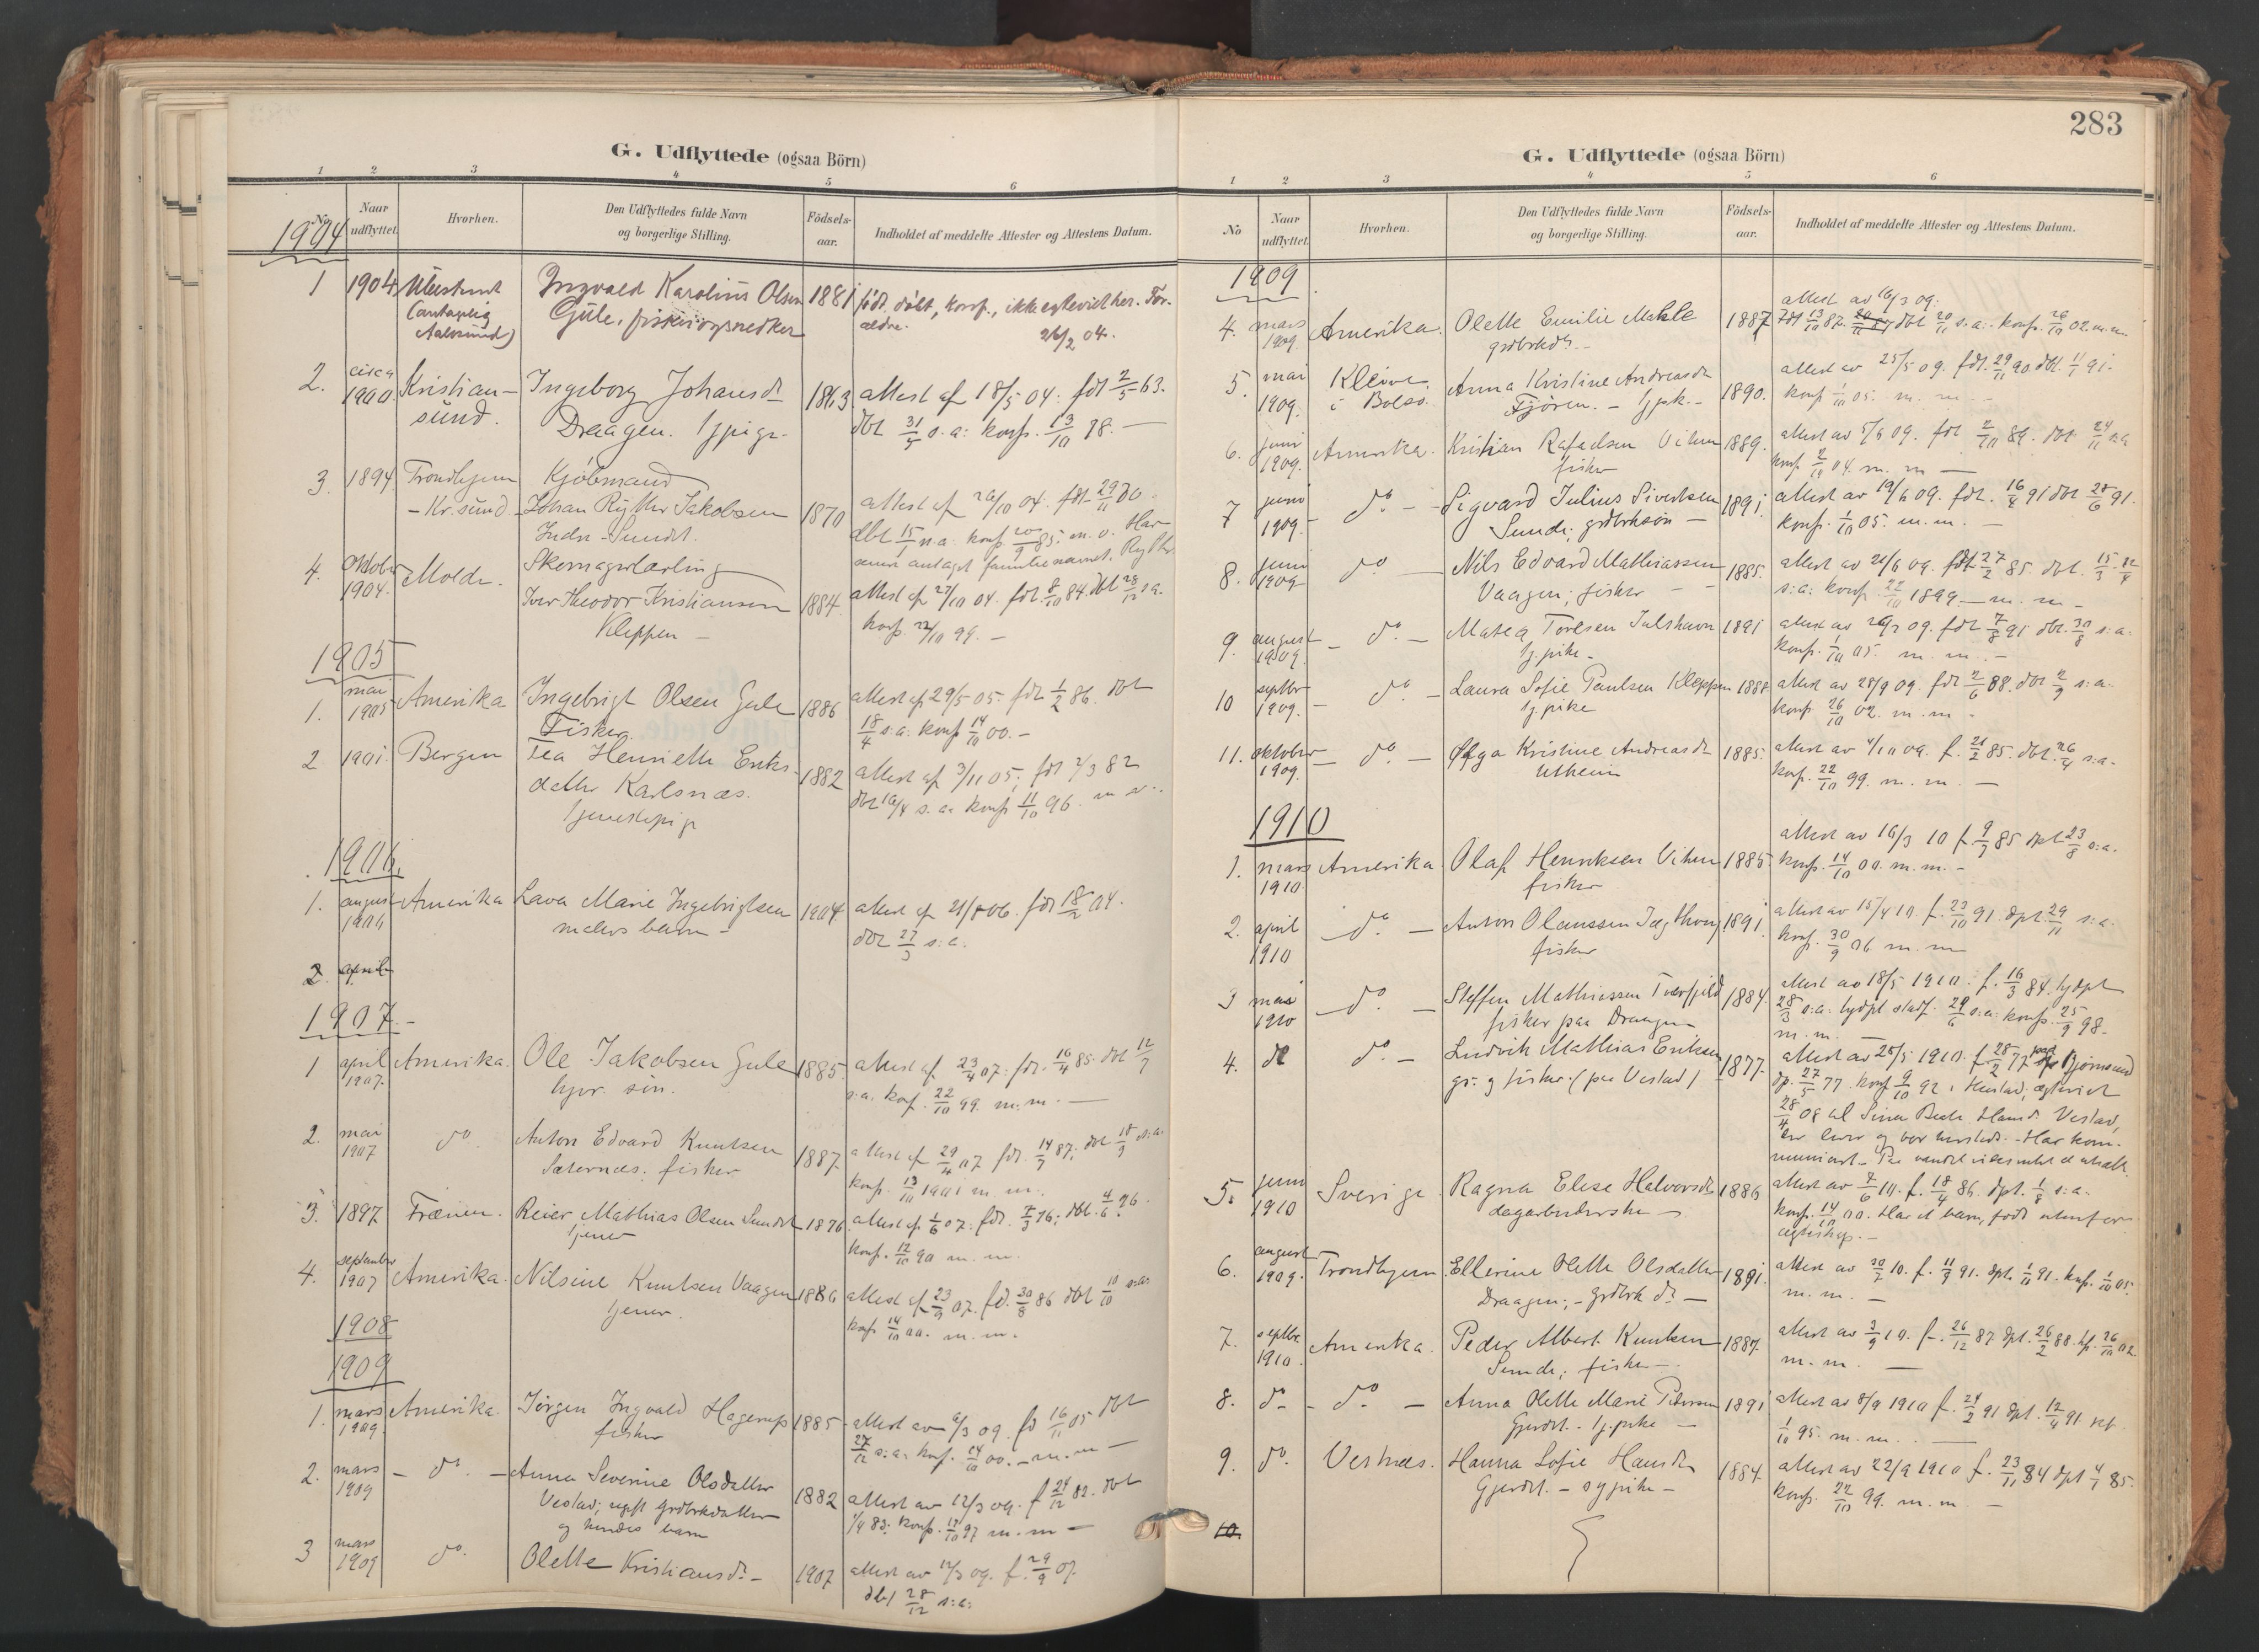 G. Udflyttede (ogsaa Börn)
1 2 3 4 5 6
No
Naar udflyttet.
Hvorhen.
Den Udflyttedes fulde Navn
og borgerlige Stilling.
Födsels-
aar.
Indholdet af meddelte Attester og Attestens Datum.
1904
1 1904 (antagelig Aalesund) Ingvald Karolius Olsen 1881 født, døbt, konf., ikke ægteviet her. For-
Gule, fisker og snedker ældre. 26/2 04.
2. circa 1900 Kristian- Ingeborg Johansdr 1863 attest af 18/5 04: fdt 2/5 63.
sund. Draagen. tjpige. dbt 31/5 s.a: konf. 13/10 78. —
3. 1894 Trondhjem Kjøbmand
- Kr.sund. Johan Rytter Jakobsen 1870 attest af 26/10 04. fdt 29/11 70.
Indre-Sundt. dbt 15/1 n.a. konf. 20/9 85. m.v. Har
senere antaget familienavnet Rytter
4. Oktober 1904. Molde. Skomagerlærling
Iver Theodor Kristiansen 1884. attest af 27/10 04. fdt 8/10 84. dbt 28/12 s.a.
Kleppen — konf. 22/10 99. —
1905
1. mai 1905 Amerika Ingebrigt Olsen Gule 1886 attest af 29/5 05. fdt 1/2 86. dbt
Fisker. 18/4 s.a. konf 14/10 00. —
2 1901. Bergen Tea Henriette Eriks- 1882 attest af 3/11 05; fdt 7/3 82
datter Karlsnæs. dbt 16/4 s.a. konf 11/10 96. m v.
tjenestepige
1906.
1. august 1906 Amerika Lava Marie Ingebrigtsen 1904 attest af 21/8 06. fdt 18/2 04.
malers barn — dbt 27/3 s.a.
2. april
1907.-
1 april 1907. Amerika. Ole Jakobsen Gule 1885. attest af 23/4 07: fdt. 16/4 85. dbt 12/7
gbr. søn. s.a. konf. 22/10 99. m.m. —
2. mai 1907 do Anton Edvard Knutsen 1887. attest af 29/4 07 fdt. 14/7 87; dbt 18/9 s.a.
Sæternæs: fisker konf. 13/10 1901 m.m.
3. 1897. Frænen. Reier Mathias Olsen Sundt 1876. attest af 1/6 07: fdt. 7/3 76; dbt. 4/6 76.
tjener konf. 12/10 90 m.m.
4. september 1907 Amerika. Nilsine Knutsen Vaagen 1886 attest af 23/9 07. fd. 30/8 86 dbt 10/10 s.a.
tjener. konf 14/10 00. m.m.
1908
1909
1. mars 1909. Amerika. Jørgen Ingvald Hagerups 1885. attest av 6/3 09. fd 16/11 05 dbt
fisker 27/12 s.a: konf. 14/10 00. — m.m —
2. mars 1909 - do. — Anna Severine Olsdatter 1882 attest av 12/3 09. f 24/12 82. dbt
Vestad; ugift grdbrkdatter 1/4 83: konf. 17/10 97 m.m —
og hendes barn
3 mars 1909 do. Olette Kristiansdr. — 1907 attest av 12/3 09. f. 29/9 07.
dbt 28/12 s.a:
283
G. Udflyttede (ogsaa Börn)
1 2 3 4 5 6
No
Naar udflyttet.
Hvorhen.
Den Udflyttedes fulde Navn
og borgerlige Stilling.
Födsels-
aar.
Indholdet af meddelte Attester og Attestens Datum.
1909
4. mars 1909. Amerika. Olette Emilie Mahle 1887 attest av 16/3 09:
grdbrkdr. — fdt 13/10 87. dbt 20/11 s.a: konf. 26/10 02. m.m.
5. mai 1909. Kleive i Bolsø. Anna Kristine Andreasdr 1890. attest av 25/5 09. fdt. 29/11 90 dbt. 11/1 91.
Fjøren. — tjpk. — konf 1/10 05. m.m. —
6. juni 1909. Amerika. Kristian Rafaelsen Viken 1889. attest av 5/6 09. fdt 2/10 89. dbt 24/11 s.a
fisker konf. 2/10 04. m.m —
7 juni 1909 - do. — Sigvard Julius Sivertsen 1891. attest av 19/6 09. fdt. 16/4 91 dbt 28/6 91.
Sunde; grdbrksøn — konf. 1/10 05. m.m. —
8. juni 1909 do — Nils Edvard Mathiassen 1885. attest av 21/6 09. fdt 27/2 85. dbt. 15/3
Vaagen; fisker — s.a: konf. 22/10 1899 — m.m —
9. august 1909. — do. — Matea Toresen Julshavn 1891 fdt 7/8 91 dbt. 30/8 s.a.
tj.pike — konf. 1/10 05. m.m. —
10 septbr 1909. — do. — Laura Sofie Paulsen Kleppen 1888. attest av 28/9 09. fdt 2/6 88. dbt 2/9 s.a.
tj.pike konf 26/10 02. m.m —
11. oktober 1909. — do. — Olga Kristine Andreasdr 1885. attest av 4/10 09. f. 21/2 85. dbt. 26/4 s.a.
Utheim konf. 22/10 99. m.m. —
1910
1. mars 1910. Amerika. Olaf Henriksen Viken 1885. attest av 16/3 10 f. 9/7 85 dpt 23/8 s.a.
fisker konf. 14/10 00. m.m. —
2. april 1910 do. — Anton Olaussen Jægthaug 1891. attest av 15/4 10. f. 23/10 91. dpt. 29/11 s.a.
fisker konf. 30/9 06 m.m
3 mai 1910 do — Steffen Mathiassen Tverfjeld 1884. attest av 18/5 1910: f. 16/3 84. hjdpt
fisker paa Draagen 28/3 s.a: hjdpt stadf. 29/6 s.a: konf. 25/9 98.
m.m. —
4. do do. — Ludvik Mathias Eriksen 1877. attest av 20/5 1910. f. 28/2 77 paa Bjørnsund
gs. og fisker (paa Vestad) dp. 27/5 77. konf 9/10 92 i Hustad; ægteviet
28/4 08 til Hansd. Vestad,
der lever og bor hersteds. Har kom-
municert.
5. juni 1910 Sverige Ragna Elise Halvorsdr 1886 attest av 7/6 10. f. 18/4 86. dpt. 1/8 s.a.
dagarbeiderske — konf. 14/10 00. Har et barn, født utenfor
egteskap. —
6. august 1909. Trondhjem. Ellerine Olette Olsdatter 1891. attest av 30/7 10. f. 11/9 91. dpt. 1/11 91. konf. 1/10 05.
Draagen; — grdbrk dr — m.m. —
7. septbr 1910. Amerika. Peder Albert Knutsen 1887. attest av 3/9 10. f. 26/12 87 dpt. 26/2 88. kf. 26/10 02.
Sunde; fisker — m.m. —
8. do — do — Anna Olette Marie Petersen 1891 attest av 8/9 1910 f. 24/2 91 dpt. 12/4 91 kf.
Gjerdet. tj.pike — 1/10 95. m.m. —
9. do. Vestnæs. Hanna Sofie Hansdr 1884. attest av 22/9 1910 f. 23/11 84 dpt 4/1 85.
Gjerdet. — sypike — konf. 22/10 99. m.m. —
10.